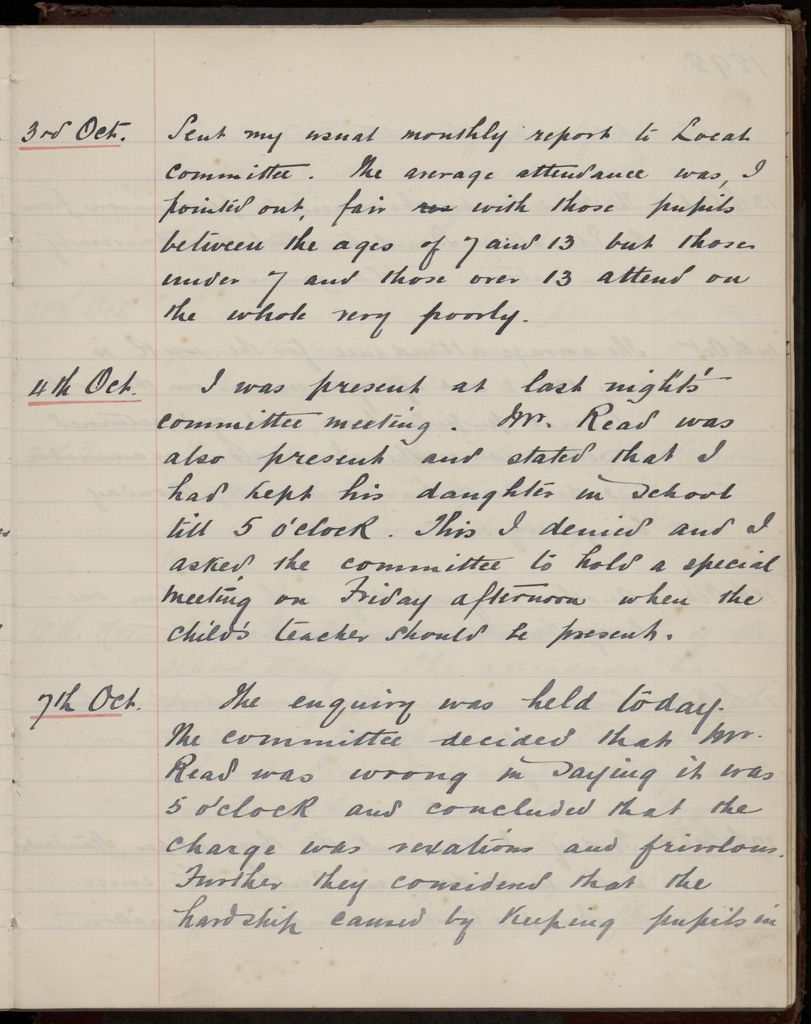 3rd Oct. Sent my usual monthly report to Local
committee. The average attendance was, I
pointed out, fair with those pupils
between the ages of 7 and 13 but those
under 7 and those over 13 attend on
the whole very poorly.
4th Oct. I was present at last night's
committee meeting. Mr. Read was
also present and stated that I
had kept his daughter in School
till 5 o'clock. This I denied and I
asked the committee to hold a special
meeting on Friday afternoon when the
child's teacher should be present.
7th Oct. The enquiry was held today.
The committee decided that Mr.
Read was wrong in saying it was
5 o'clock and concluded that the
charge was vexatious and frivolous.
Further they considered that the
hardship caused by keeping pupils in